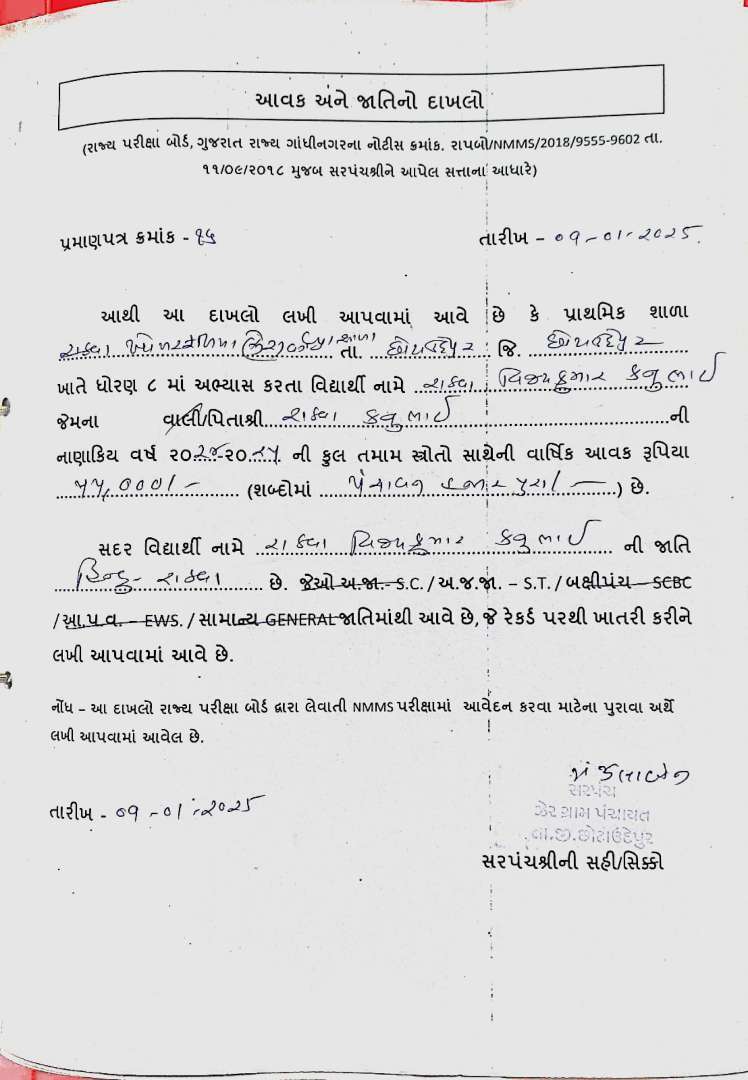 આવક અને જાતિનો દાખલો
(રાજ્ય પરીક્ષા બોર્ડ, ગુજરાત રાજ્ય ગાંધીનગરના નોટીસ ક્રમાંક. રાપબો/NMMS/2018/9555-9602 તા.
૧૧/૦૯/૨૦૧૮ મુજબ સરપંચશ્રીને આપેલ સત્તાના આધારે)
પ્રમાણપત્ર ક્રમાંક - ૧૬ તારીખ - ૦9-01-2025.
આથી આ દાખલો લખી આપવામાં આવે છે કે પ્રાથમિક શાળા
રાઠવા શાળા તા. છોટાઉદેપુર જિ. છોટાઉદેપુર
ખાતે ધોરણ ૮ માં અભ્યાસ કરતા વિદ્યાર્થી નામે રાઠવા વિજયકુમાર કનુભાઈ
જેમના વાલી/પિતાશ્રી રાઠવા કનુભાઈ ની
નાણાકિય વર્ષ ૨૦૨૪-૨૦૨૫ ની કુલ તમામ સ્ત્રોતો સાથેની વાર્ષિક આવક રૂપિયા
૫૫,૦૦૦/- (શબ્દોમાં પંચાવન હજાર પુરા/-) છે.
સદર વિદ્યાર્થી નામે રાઠવા વિજયકુમાર કનુભાઈ ની જાતિ
હિન્દુ-રાઠવા છે. જેઓ અ.જા. - S.C. / અ.જ.જા. – S.T. / બક્ષીપંચ – SEBC
/ આ.પ.વ. – EWS. / સામાન્ય GENERAL જાતિમાંથી આવે છે, જે રેકર્ડ પરથી ખાતરી કરીને
લખી આપવામાં આવે છે.
નોંધ – આ દાખલો રાજ્ય પરીક્ષા બોર્ડ દ્વારા લેવાતી NMMS પરીક્ષામાં આવેદન કરવા માટેના પુરાવા અર્થે
લખી આપવામાં આવેલ છે.
મંજુલાબેન
સરપંચ
તારીખ - ૦9-01-2025
ઝેર ગ્રામ પંચાયત
તા.જી.છોટાઉદેપુર
સરપંચશ્રીની સહી/સિક્કો